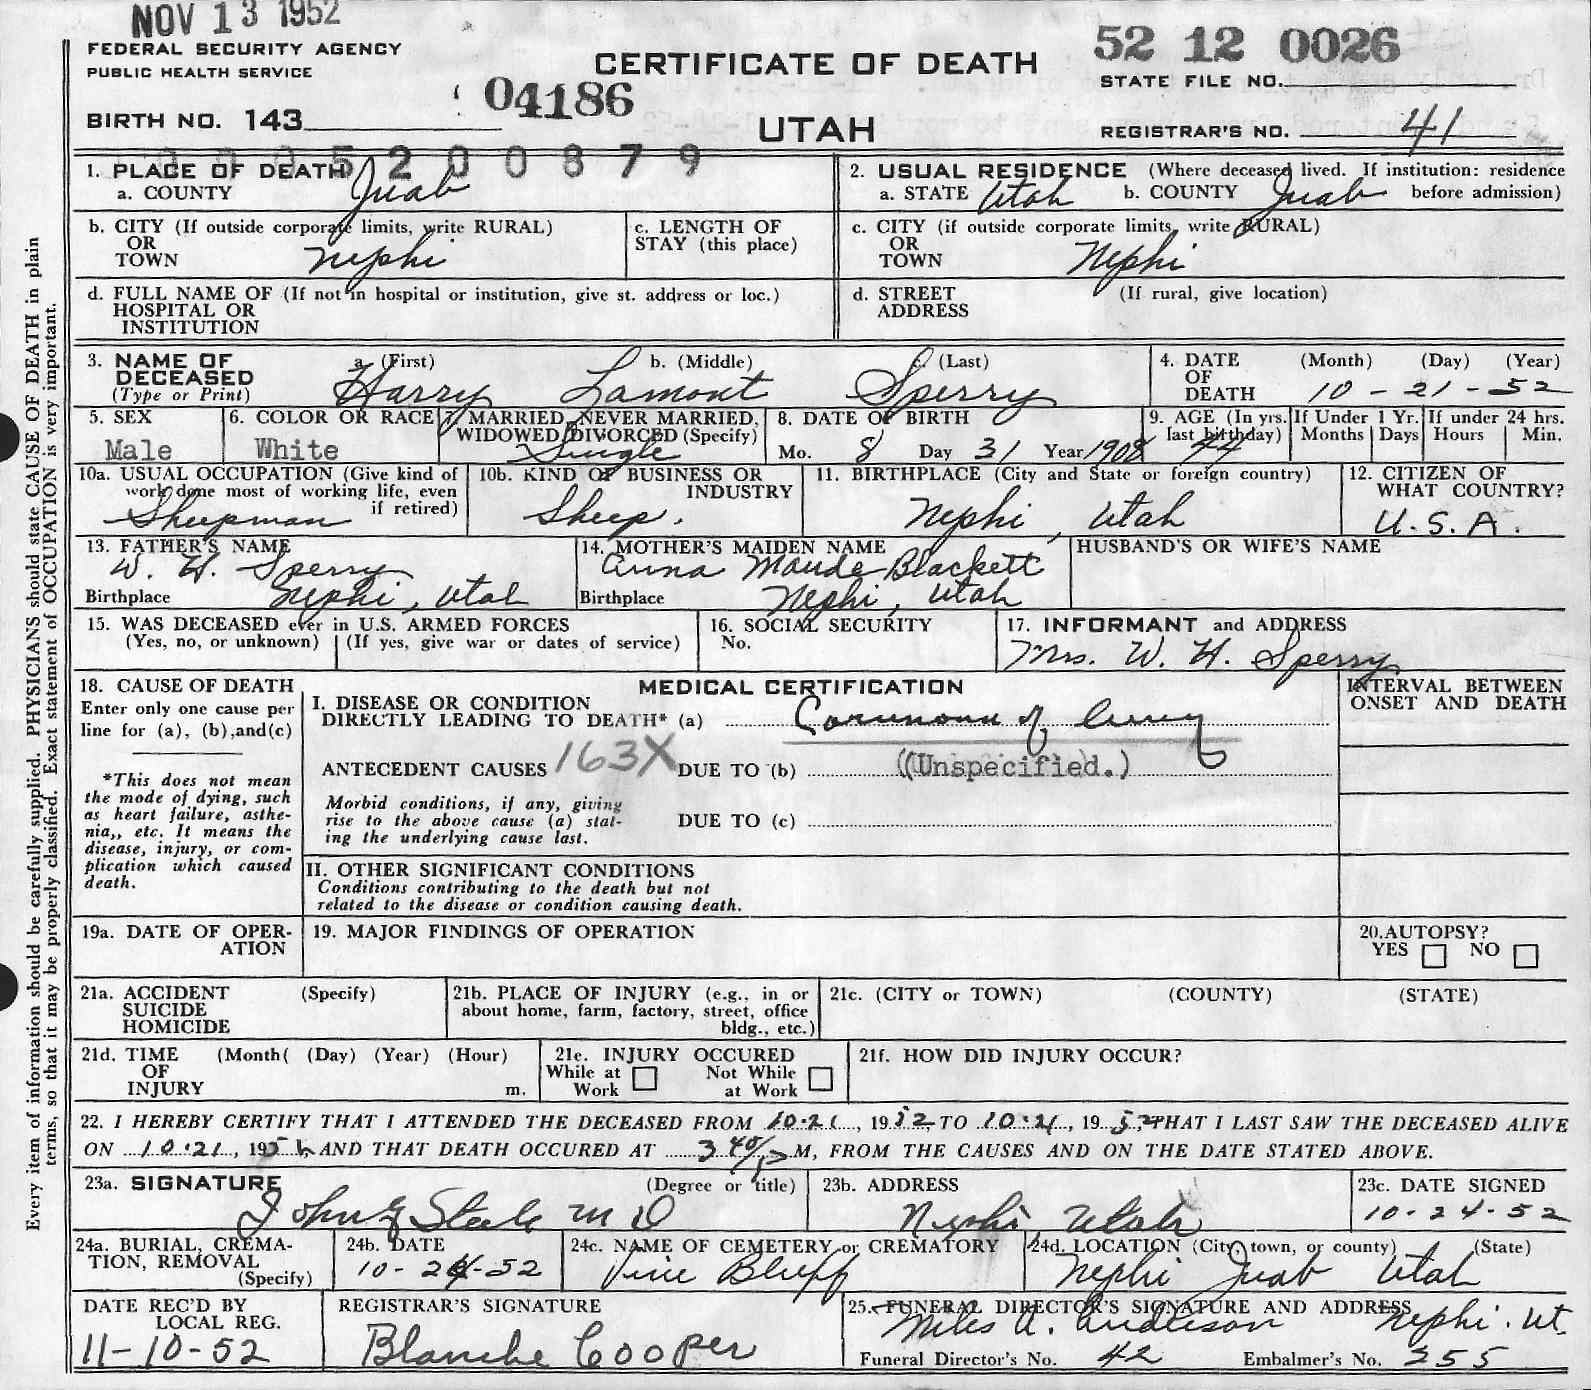 NOV 13 1952
FEDERAL SECURITY AGENCY
PUBLIC HEALTH SERVICE
CERTIFICATE OF DEATH
52 12 0026
STATE FILE NO.
BIRTH NO. 143
04186
UTAH
REGISTRAR'S NO. 41
1. PLACE OF DEATH
a. COUNTY Juab
2. USUAL RESIDENCE (Where deceased lived. If institution: residence before admission)
a. STATE Utah b. COUNTY Juab
b. CITY (If outside corporate limits, write RURAL)
OR
TOWN Nephi
c. LENGTH OF
STAY (this place)
c. CITY (if outside corporate limits, write RURAL)
OR
TOWN Nephi
d. FULL NAME OF (If not in hospital or institution, give st. address or loc.)
HOSPITAL OR
INSTITUTION
d. STREET (If rural, give location)
ADDRESS
3. NAME OF
DECEASED
(Type or Print)
a. (First) b. (Middle) c. (Last)
Harry Lamont Sperry
4. DATE (Month) (Day) (Year)
OF
DEATH 10-21-52
5. SEX
Male
6. COLOR OR RACE
White
7. MARRIED, NEVER MARRIED,
WIDOWED, DIVORCED (Specify)
Single
8. DATE OF BIRTH
Mo. 8 Day 31 Year 1908
9. AGE (In yrs.
last birthday) 44
If Under 1 Yr.
Months Days
If under 24 hrs.
Hours Min.
10a. USUAL OCCUPATION (Give kind of
work done most of working life, even
if retired)
Sheepman
10b. KIND OF BUSINESS OR
INDUSTRY
Sheep.
11. BIRTHPLACE (City and State or foreign country)
Nephi, Utah
12. CITIZEN OF
WHAT COUNTRY?
U.S.A.
13. FATHER'S NAME
W. H. Sperry
Birthplace Nephi, Utah
14. MOTHER'S MAIDEN NAME
Anna Maude Blackett
Birthplace Nephi, Utah
HUSBAND'S OR WIFE'S NAME
15. WAS DECEASED ever in U.S. ARMED FORCES
(Yes, no, or unknown) (If yes, give war or dates of service)
16. SOCIAL SECURITY
No.
17. INFORMANT and ADDRESS
Mrs. W. H. Sperry
18. CAUSE OF DEATH
Enter only one cause per
line for (a), (b),and(c)
*This does not mean
the mode of dying, such
as heart failure, asthe-
nia,, etc. It means the
disease, injury, or com-
plication which caused
death.
MEDICAL CERTIFICATION
INTERVAL BETWEEN
ONSET AND DEATH
I. DISEASE OR CONDITION
DIRECTLY LEADING TO DEATH* (a) of
ANTECEDENT CAUSES 163X DUE TO (b) (Unspecified.)
Morbid conditions, if any, giving
rise to the above cause (a) stat-
ing the underlying cause last.
DUE TO (c)
II. OTHER SIGNIFICANT CONDITIONS
Conditions contributing to the death but not
related to the disease or condition causing death.
19a. DATE OF OPER-
ATION
19. MAJOR FINDINGS OF OPERATION
20.AUTOPSY?
YES NO
21a. ACCIDENT (Specify)
SUICIDE
HOMICIDE
21b. PLACE OF INJURY (e.g., in or
about home, farm, factory, street, office
bldg., etc.)
21c. (CITY or TOWN) (COUNTY) (STATE)
21d. TIME (Month( (Day) (Year) (Hour)
OF
INJURY m.
21e. INJURY OCCURED
While at Work Not While at Work
21f. HOW DID INJURY OCCUR?
22. I HEREBY CERTIFY THAT I ATTENDED THE DECEASED FROM 10-21, 1952, TO 10-21, 1952 THAT I LAST SAW THE DECEASED ALIVE
ON 10-21, 1952 AND THAT DEATH OCCURED AT 3 40 P M, FROM THE CAUSES AND ON THE DATE STATED ABOVE.
23a. SIGNATURE (Degree or title)
John G Steele M D
23b. ADDRESS
Nephi Utah
23c. DATE SIGNED
10-24-52
24a. BURIAL, CREMA-
TION, REMOVAL
(Specify)
24b. DATE
10-24-52
24c. NAME OF CEMETERY or CREMATORY
Vine Bluff
24d. LOCATION (City, town, or county) (State)
Nephi Juab Utah
DATE REC'D BY
LOCAL REG.
11-10-52
REGISTRAR'S SIGNATURE
Blanche Cooper
25. FUNERAL DIRECTOR'S SIGNATURE AND ADDRESS
Miles A. Anderson Nephi. Ut.
Funeral Director's No. 42 Embalmer's No. 255
Every item of information should be carefully supplied. PHYSICIANS should state CAUSE OF DEATH in plain
terms, so that it may be properly classified. Exact statement of OCCUPATION is very important.